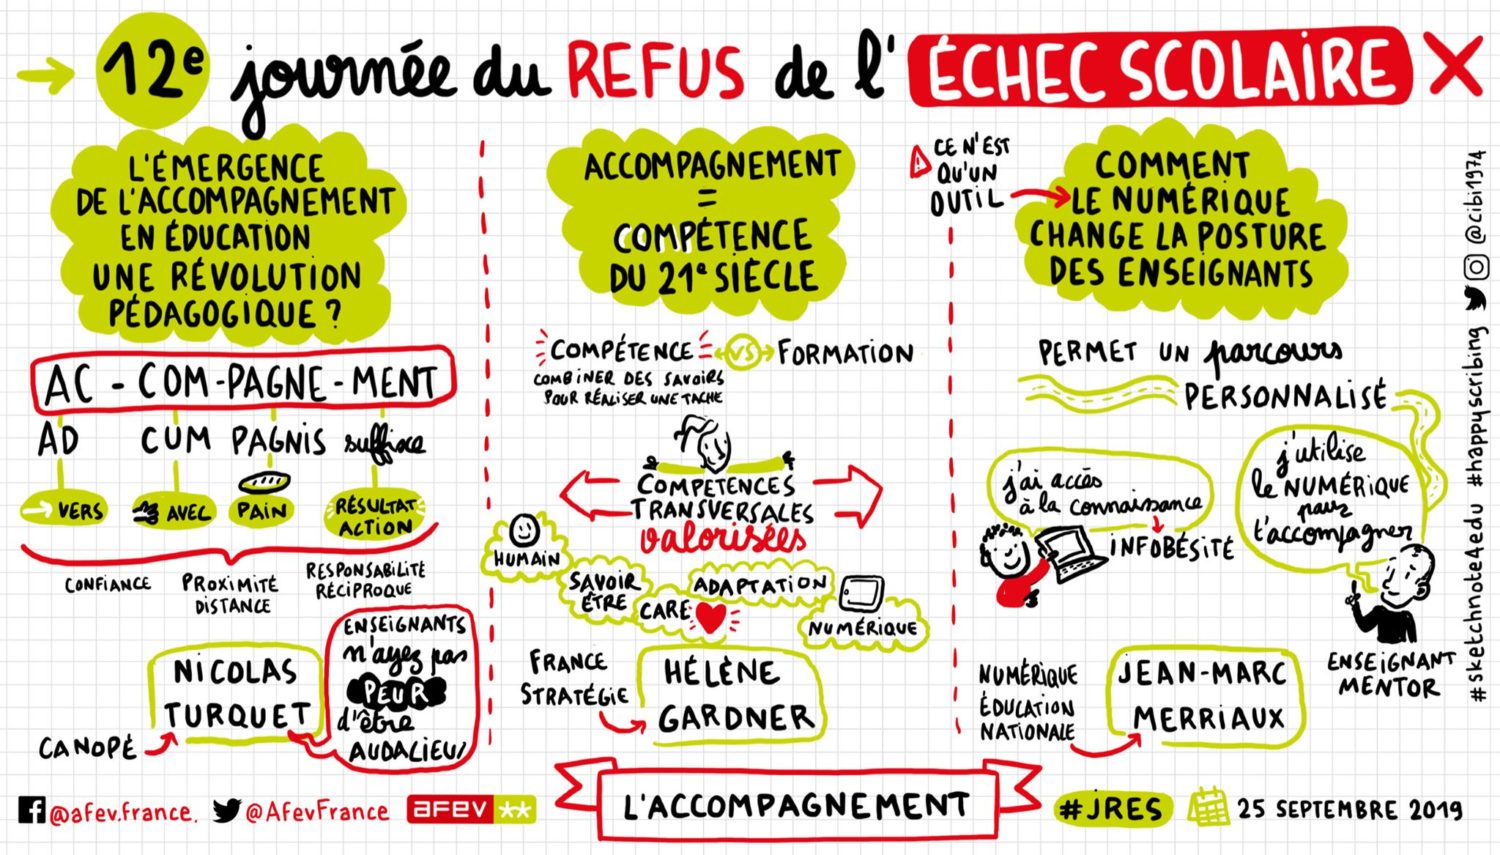 12e journée du REFUS de l'ÉCHEC SCOLAIRE
L'ÉMERGENCE
DE L'ACCOMPAGNEMENT
EN ÉDUCATION
UNE RÉVOLUTION
PÉDAGOGIQUE ?
AC - COM - PAGNE - MENT
AD CUM PAGNIS suffixe
VERS AVEC PAIN RÉSULTAT
ACTION
CONFIANCE
PROXIMITÉ
DISTANCE
RESPONSABILITÉ
RÉCIPROQUE
NICOLAS
TURQUET
CANOPÉ
ENSEIGNANTS
n'ayez pas
PEUR
d'être
AUDACIEUX
ACCOMPAGNEMENT
=
COMPÉTENCE
DU 21e SIÈCLE
COMPÉTENCE VS FORMATION
COMBINER DES SAVOIRS
POUR RÉALISER UNE TACHE
COMPETENCES
TRANSVERSALES
valorisées
HUMAIN
SAVOIR
ÊTRE
CARE
ADAPTATION
NUMÉRIQUE
FRANCE
STRATÉGIE
HÉLÈNE
GARDNER
CE N'EST
QU'UN
OUTIL
COMMENT
LE NUMÉRIQUE
CHANGE LA POSTURE
DES ENSEIGNANTS
PERMET UN parcours
PERSONNALISÉ
j'ai accès
à la connaissance
INFOBÉSITÉ
j'utilise
le NUMÉRIQUE
pour
t'accompagner
ENSEIGNANT
MENTOR
NUMÉRIQUE
ÉDUCATION
NATIONALE
JEAN-MARC
MERRIAUX
#sketchnote4edu #happyscribing @cibi1974
@afev.france.
@AfevFrance
afev
L'ACCOMPAGNEMENT
#JRES
25 SEPTEMBRE 2019